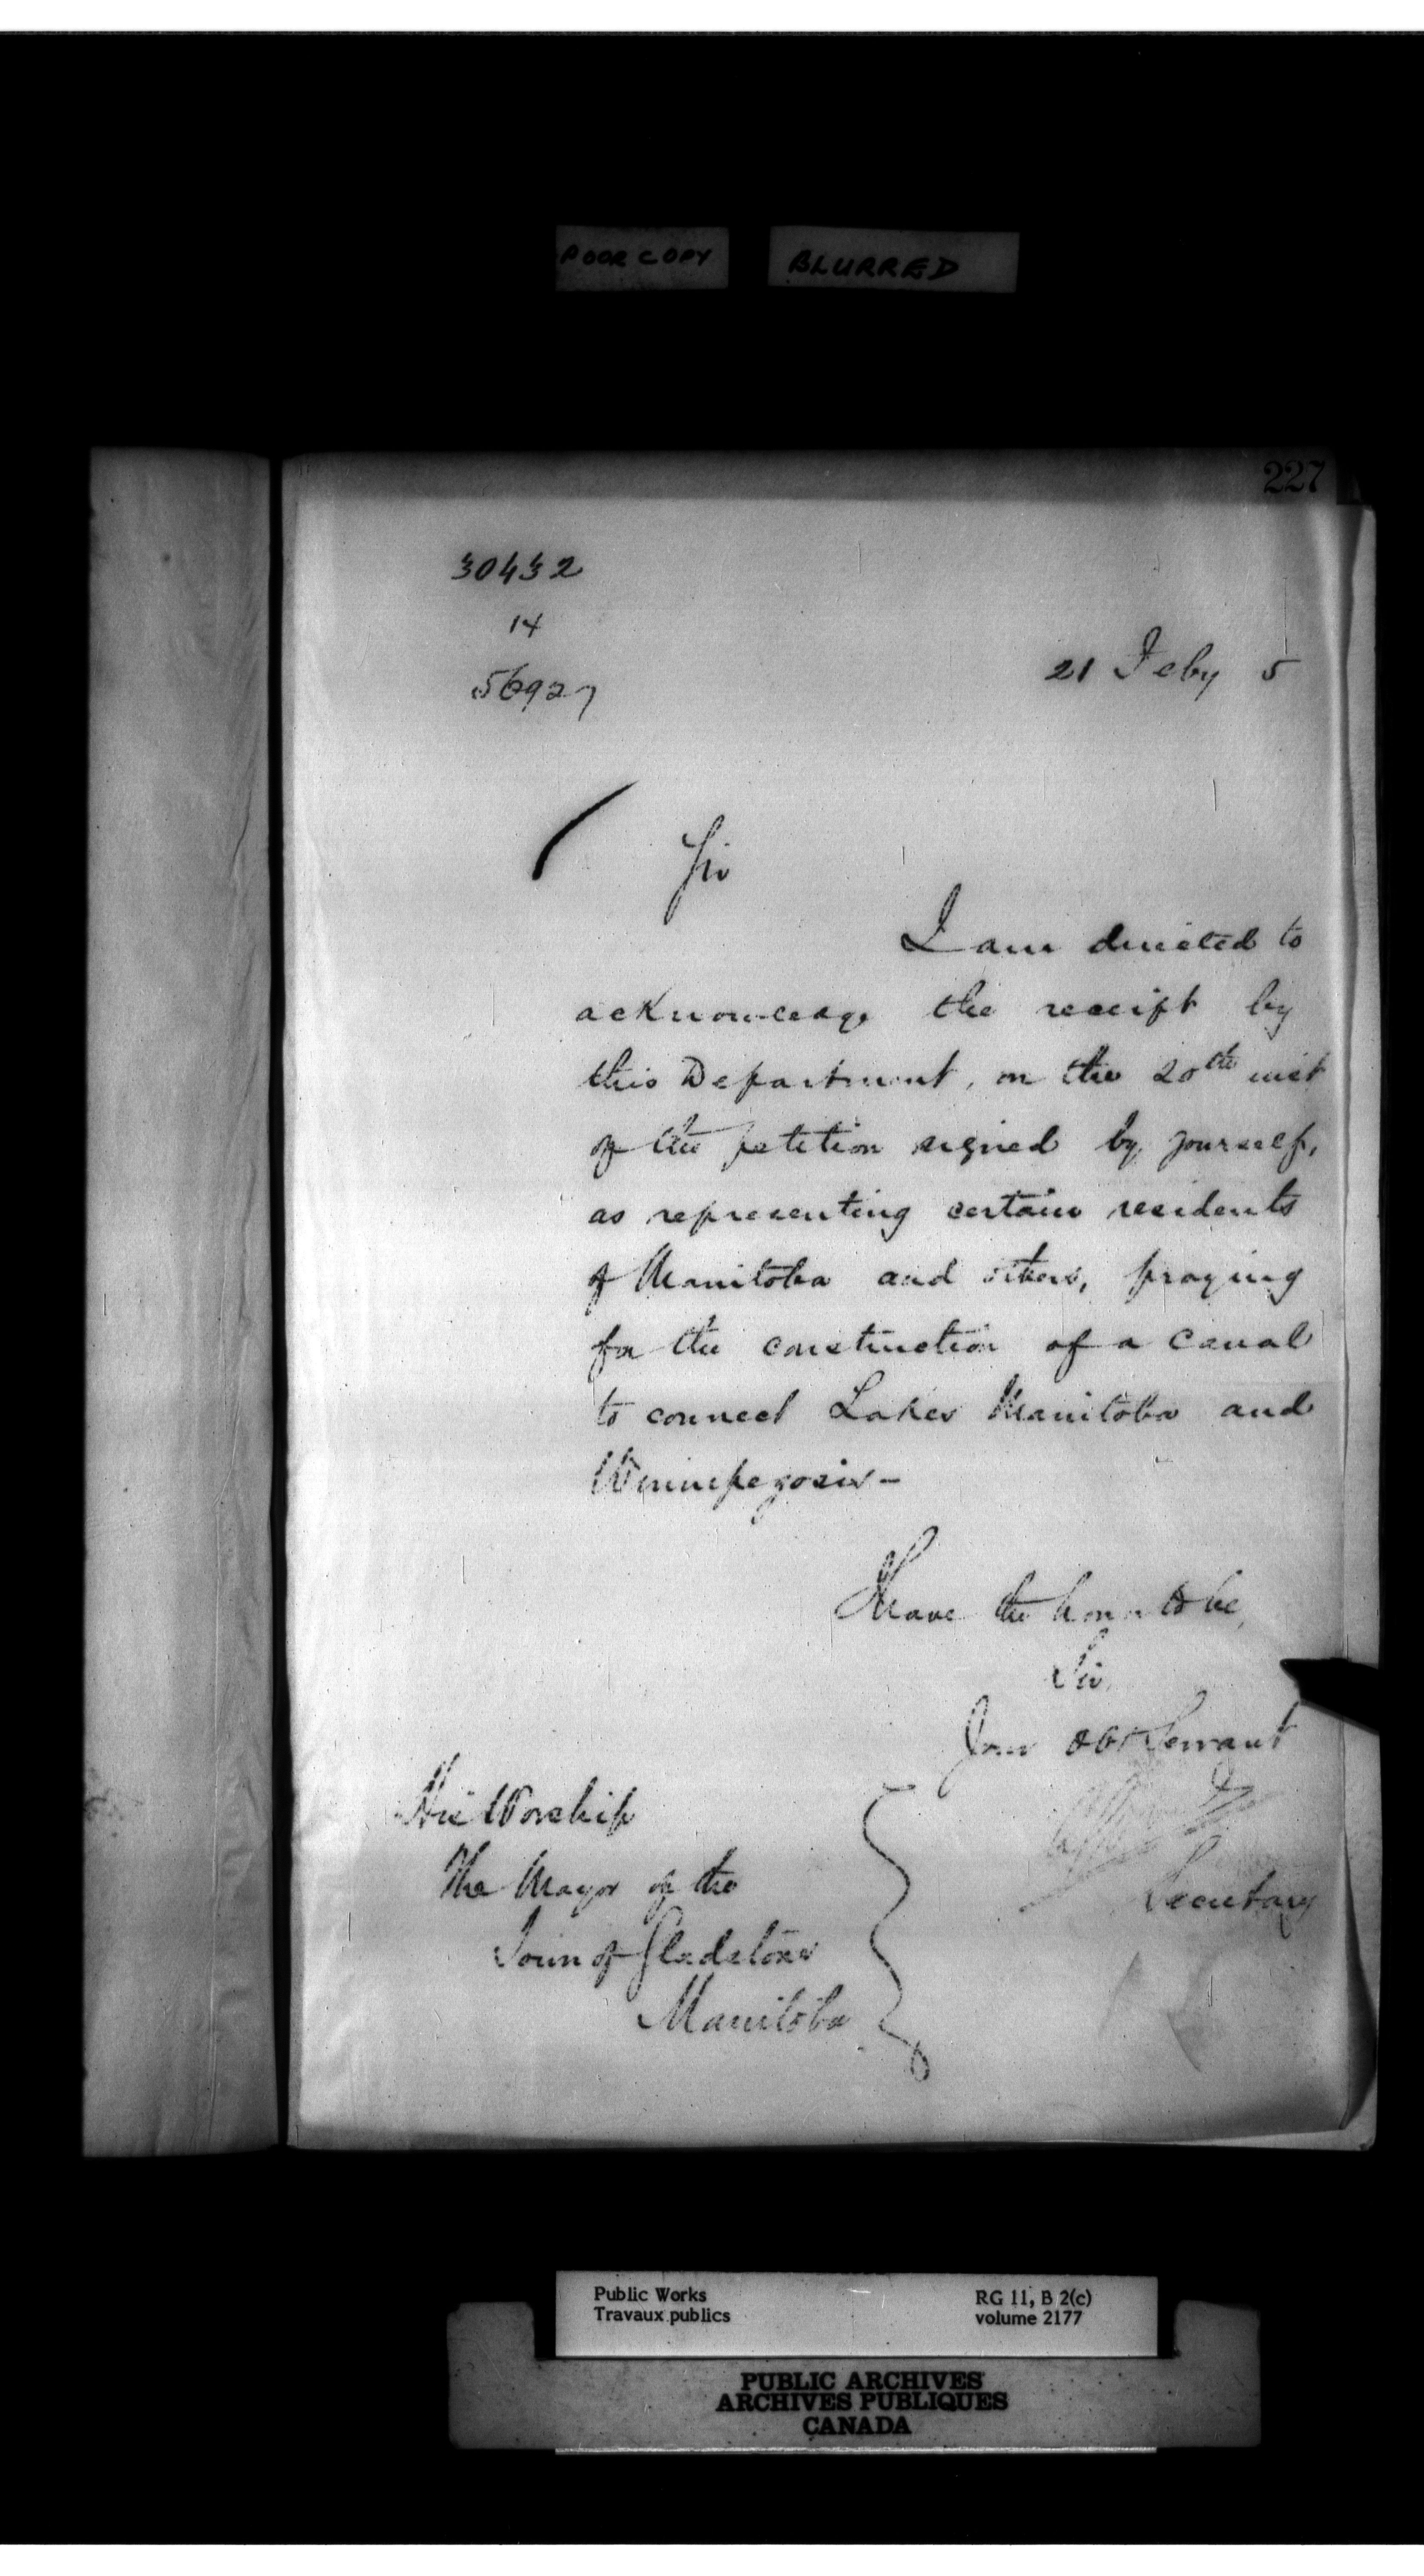 POOR COPY
BLURRED
227
30432
14
56927
21 Feby 5
Sir
I am directed to
acknowledge the receipt by
this Department, on the 20th inst
of the petition signed by yourself,
as representing certain residents
of Manitoba and others, praying
for the construction of a canal
to connect Lakes Manitoba and
Winnipegosis -
I have the honor to be,
Sir,
Your Obt Servant
Secretary
His Worship
The Mayor of the
Town of Gladstone
Manitoba
Public Works
Travaux publics
RG 11, B 2(c)
volume 2177
PUBLIC ARCHIVES
ARCHIVES PUBLIQUES
CANADA